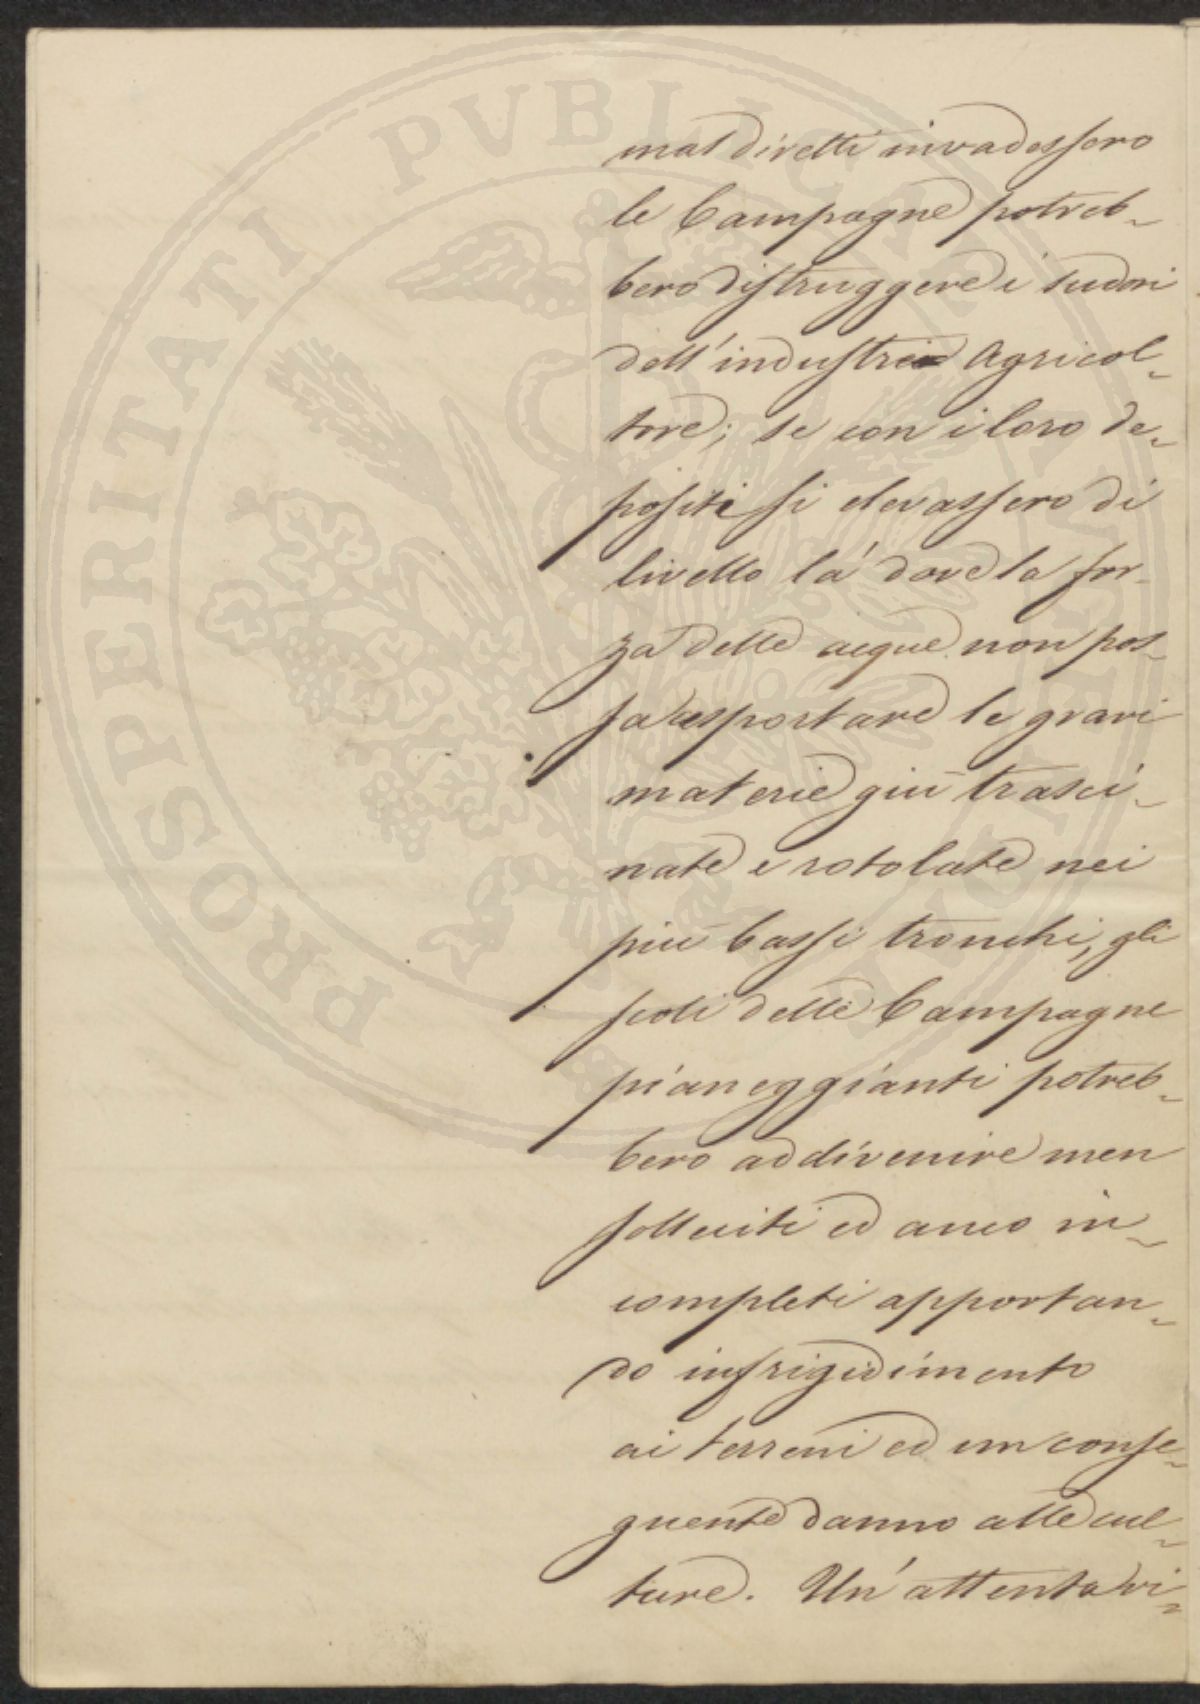 PROSPERITATI PUBLICAE AUGENDAE
mal diretti invadessero
le Campagne potreb-
bero distruggere i sudori
dell'industre Agricol-
tore; se con i loro de-
positi si elevassero di
livello lá dove la for-
za delle acque non pos-
sa asportare le gravi
materie giú trasci-
nate e rotolate nei
piú bassi tronchi, gli
scoli delle Campagne
pianeggianti potreb-
bero addivenire men
solleciti ed anco in-
completi apportan-
do infrigidimento
ai terreni ed un conse-
guente danno alle cul-
ture. Un'attenta vi-